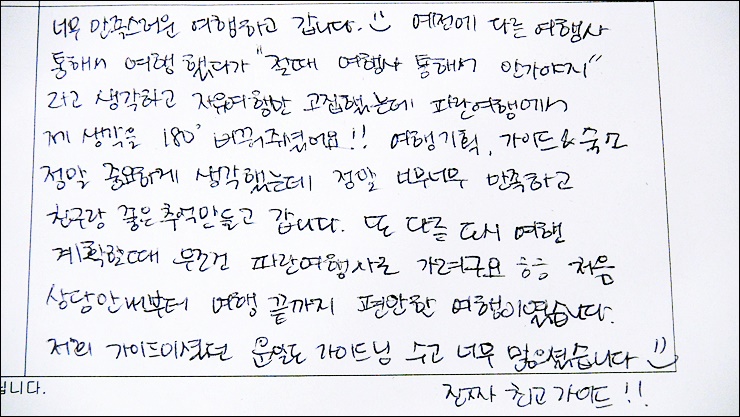 너무 만족스러운 여행하고 갑니다. 예전에 다른 여행사
통해서 여행 했다가 "절때 여행사 통해서 안가야지"
라고 생각하고 자유여행만 고집했는데 파란여행에서
제 생각을 180° 바꿔주셨어요!! 여행기획, 가이드&숙소
정말 중요하게 생각했는데 정말 너무너무 만족하고
친구랑 좋은 추억만들고 갑니다. 또 다른 도시 여행
계획할때 무조건 파란여행사로 가려구요 ㅎㅎ 처음
상담안내부터 여행 끝까지 편안한 여행이였습니다.
저희 가이드이셨던 가이드님 수고 너무 많으셨습니다
진짜 최고 가이드!!
됩니다.